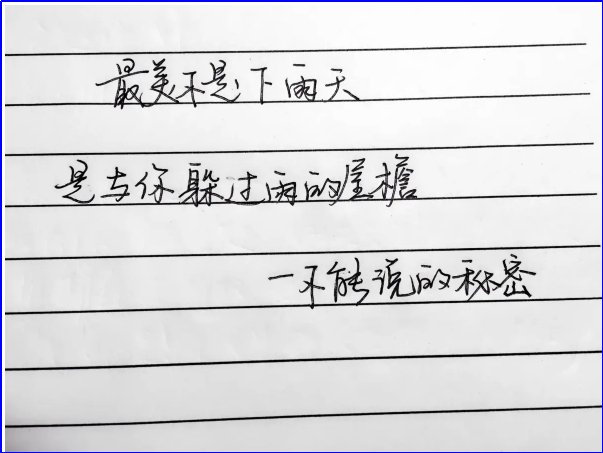 最美不是下雨天
是与你躲过雨的屋檐
一不能说的秘密